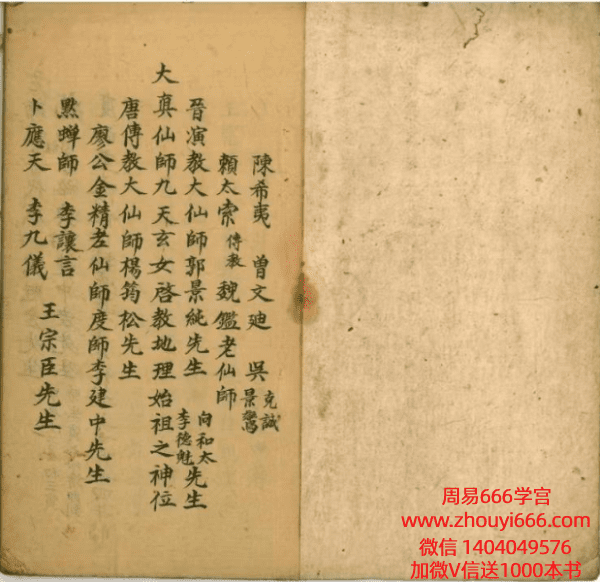 陳希夷 曾文廸 吳克誠景鸞
賴太索傳教 魏鑑老仙師
晉演教大仙師郭景純先生 向和太李德魁先生
大真仙師九天玄女啓教地理始祖之神位
唐傳教大仙師楊筠松先生
廖公金精老仙師度師李建中先生
點蟬師 李讓言
卜應天 李九儀 王宗臣先生
周易666学宫
www.zhouyi666.com
微信 1404049576
加微V信送1000本书